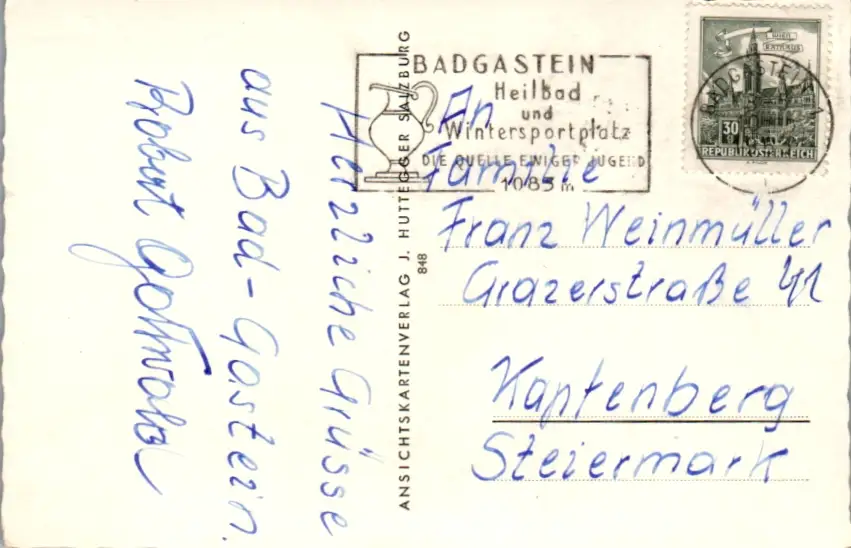 Herzliche Grüsse
aus Bad-Gastein.
Robert Gottwald
ANSICHTSKARTENVERLAG J. HUTTEGGER SALZBURG
848
BADGASTEIN
Heilbad
und
Wintersportplatz
DIE QUELLE EWIGER JUGEND
1083 m
WIEN
RATHAUS
30
g
REPUBLIK ÖSTERREICH
BADGASTEIN 1
An
Familie
Franz Weinmüller
Grazerstraße 41
Kapfenberg
Steiermark